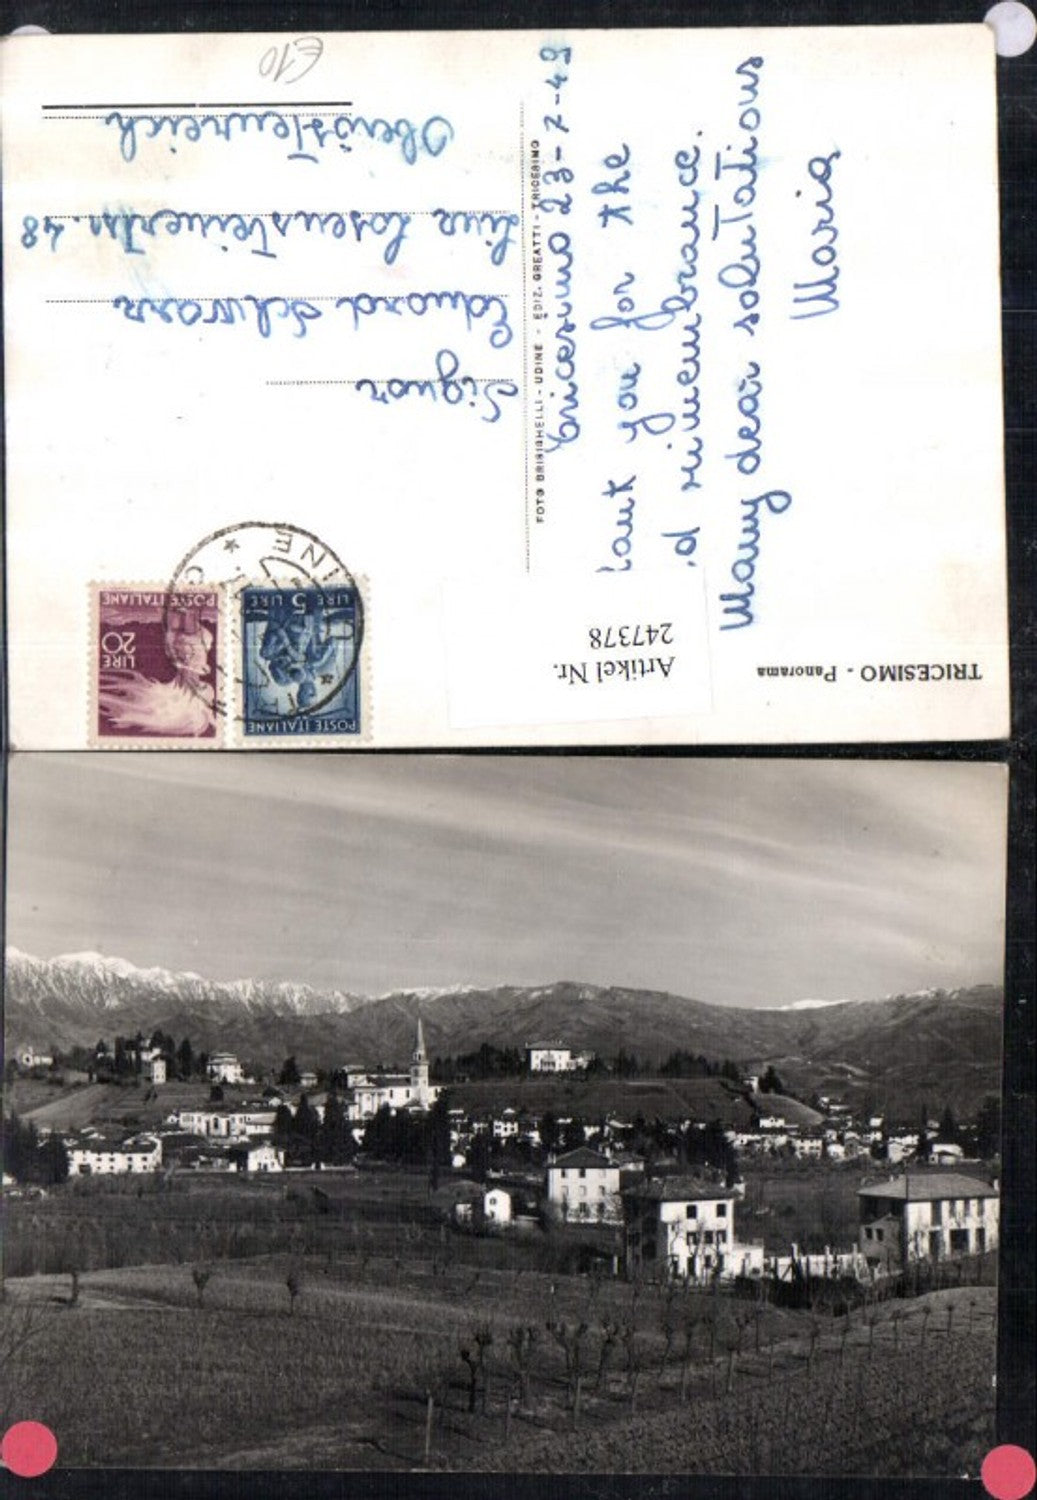 TRICESIMO - Panorama
Tricesimo 23-7-49
you for the
d rimembrance.
Many dear solutations
Maria
FOTO BRISIGHELLI - UDINE - EDIZ. GREATTI - TRICESIMO
Artikel Nr.
247378
POSTE ITALIANE
5 LIRE
LIRE
20
POSTE ITALIANE
UDINE
Signor
Eduard Schwarz
48
Oberösterreich
€10